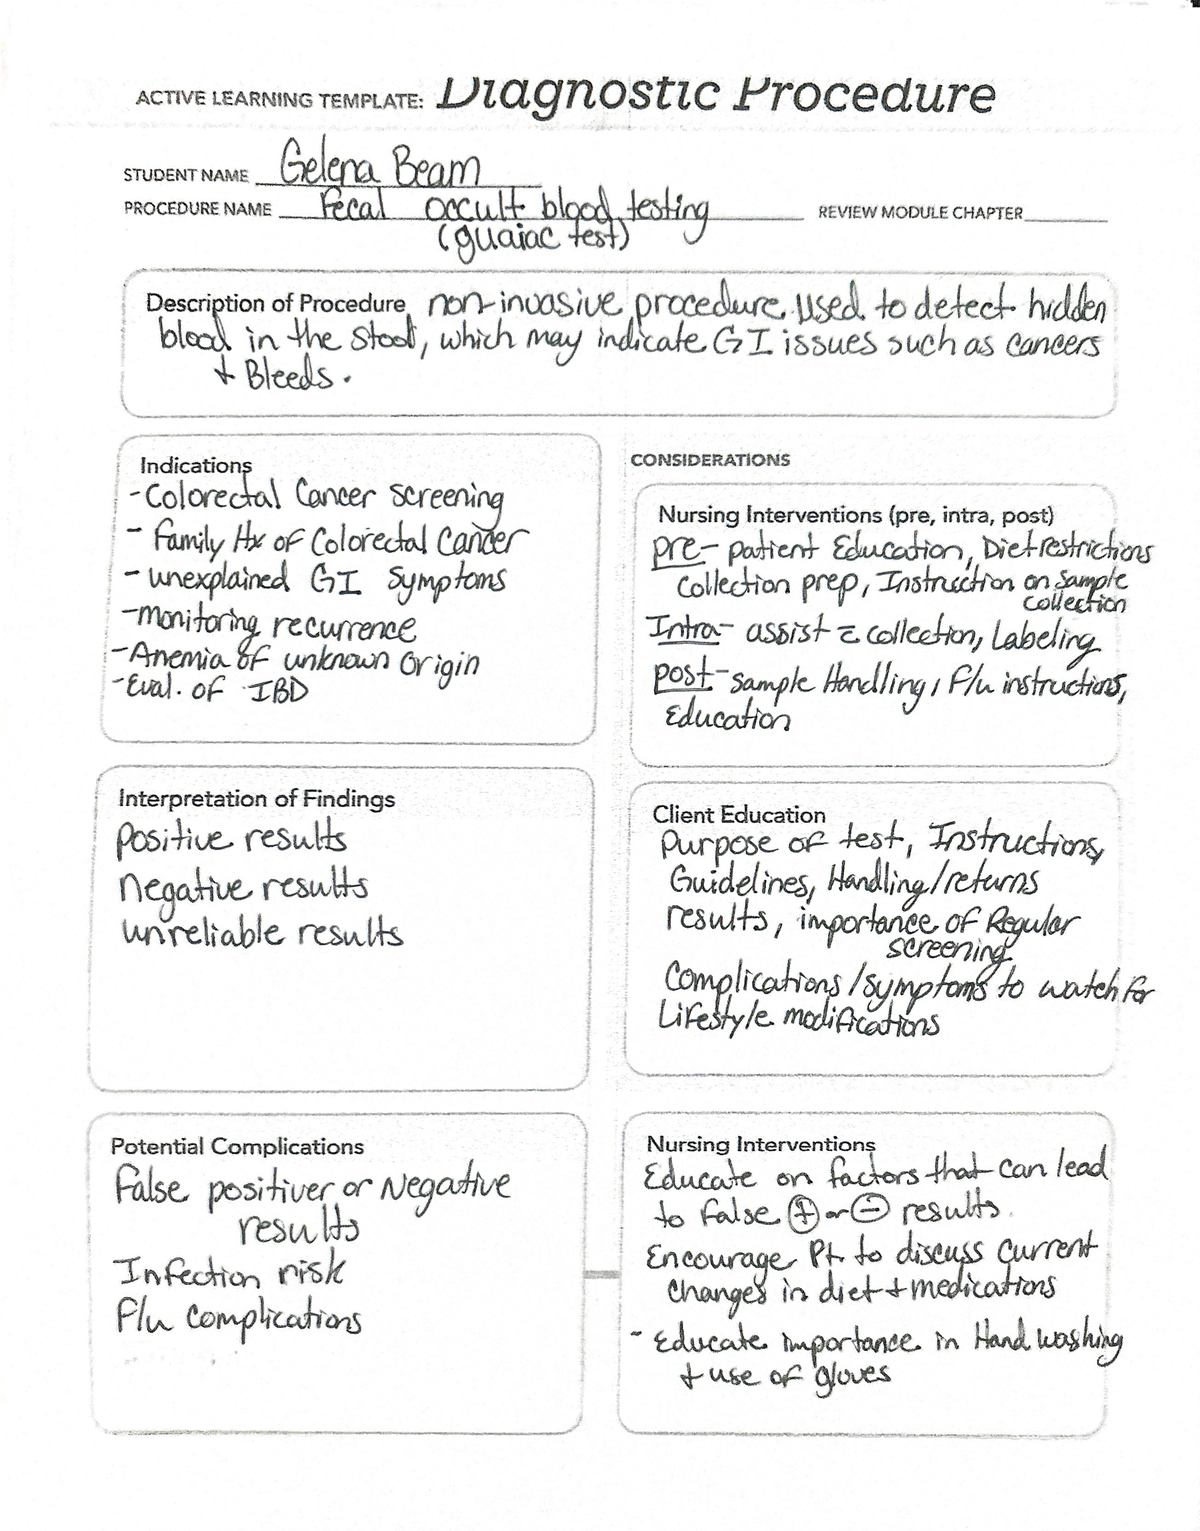 ACTIVE LEARNING TEMPLATE: Diagnostic Procedure
STUDENT NAME Gelena Beam
PROCEDURE NAME Fecal occult blood testing
(guaiac test)
REVIEW MODULE CHAPTER
Description of Procedure non-invasive procedure used to detect hidden
blood in the stool, which may indicate GI issues such as cancers
+ Bleeds.
Indications
- Colorectal Cancer screening
- Family Hx of Colorectal Cancer
- unexplained GI symptoms
- monitoring recurrence
- Anemia of unknown origin
- Eval. of IBD
CONSIDERATIONS
Nursing Interventions (pre, intra, post)
pre- patient Education, Diet restrictions
collection prep, Instruction on sample
collection
Intra- assist c collection, Labeling
post- sample Handling, F/u instructions,
Education
Interpretation of Findings
Positive results
Negative results
unreliable results
Client Education
Purpose of test, Instructions,
Guidelines, Handling/returns
results, importance of Regular
screening
Complications/symptoms to watch for
Lifestyle modifications
Potential Complications
False positiver or Negative
results
Infection risk
F/u complications
Nursing Interventions
Educate on factors that can lead
to False + or - results.
Encourage Pt. to discuss current
changes in diet + medications
- Educate importance in Hand washing
+ use of gloves